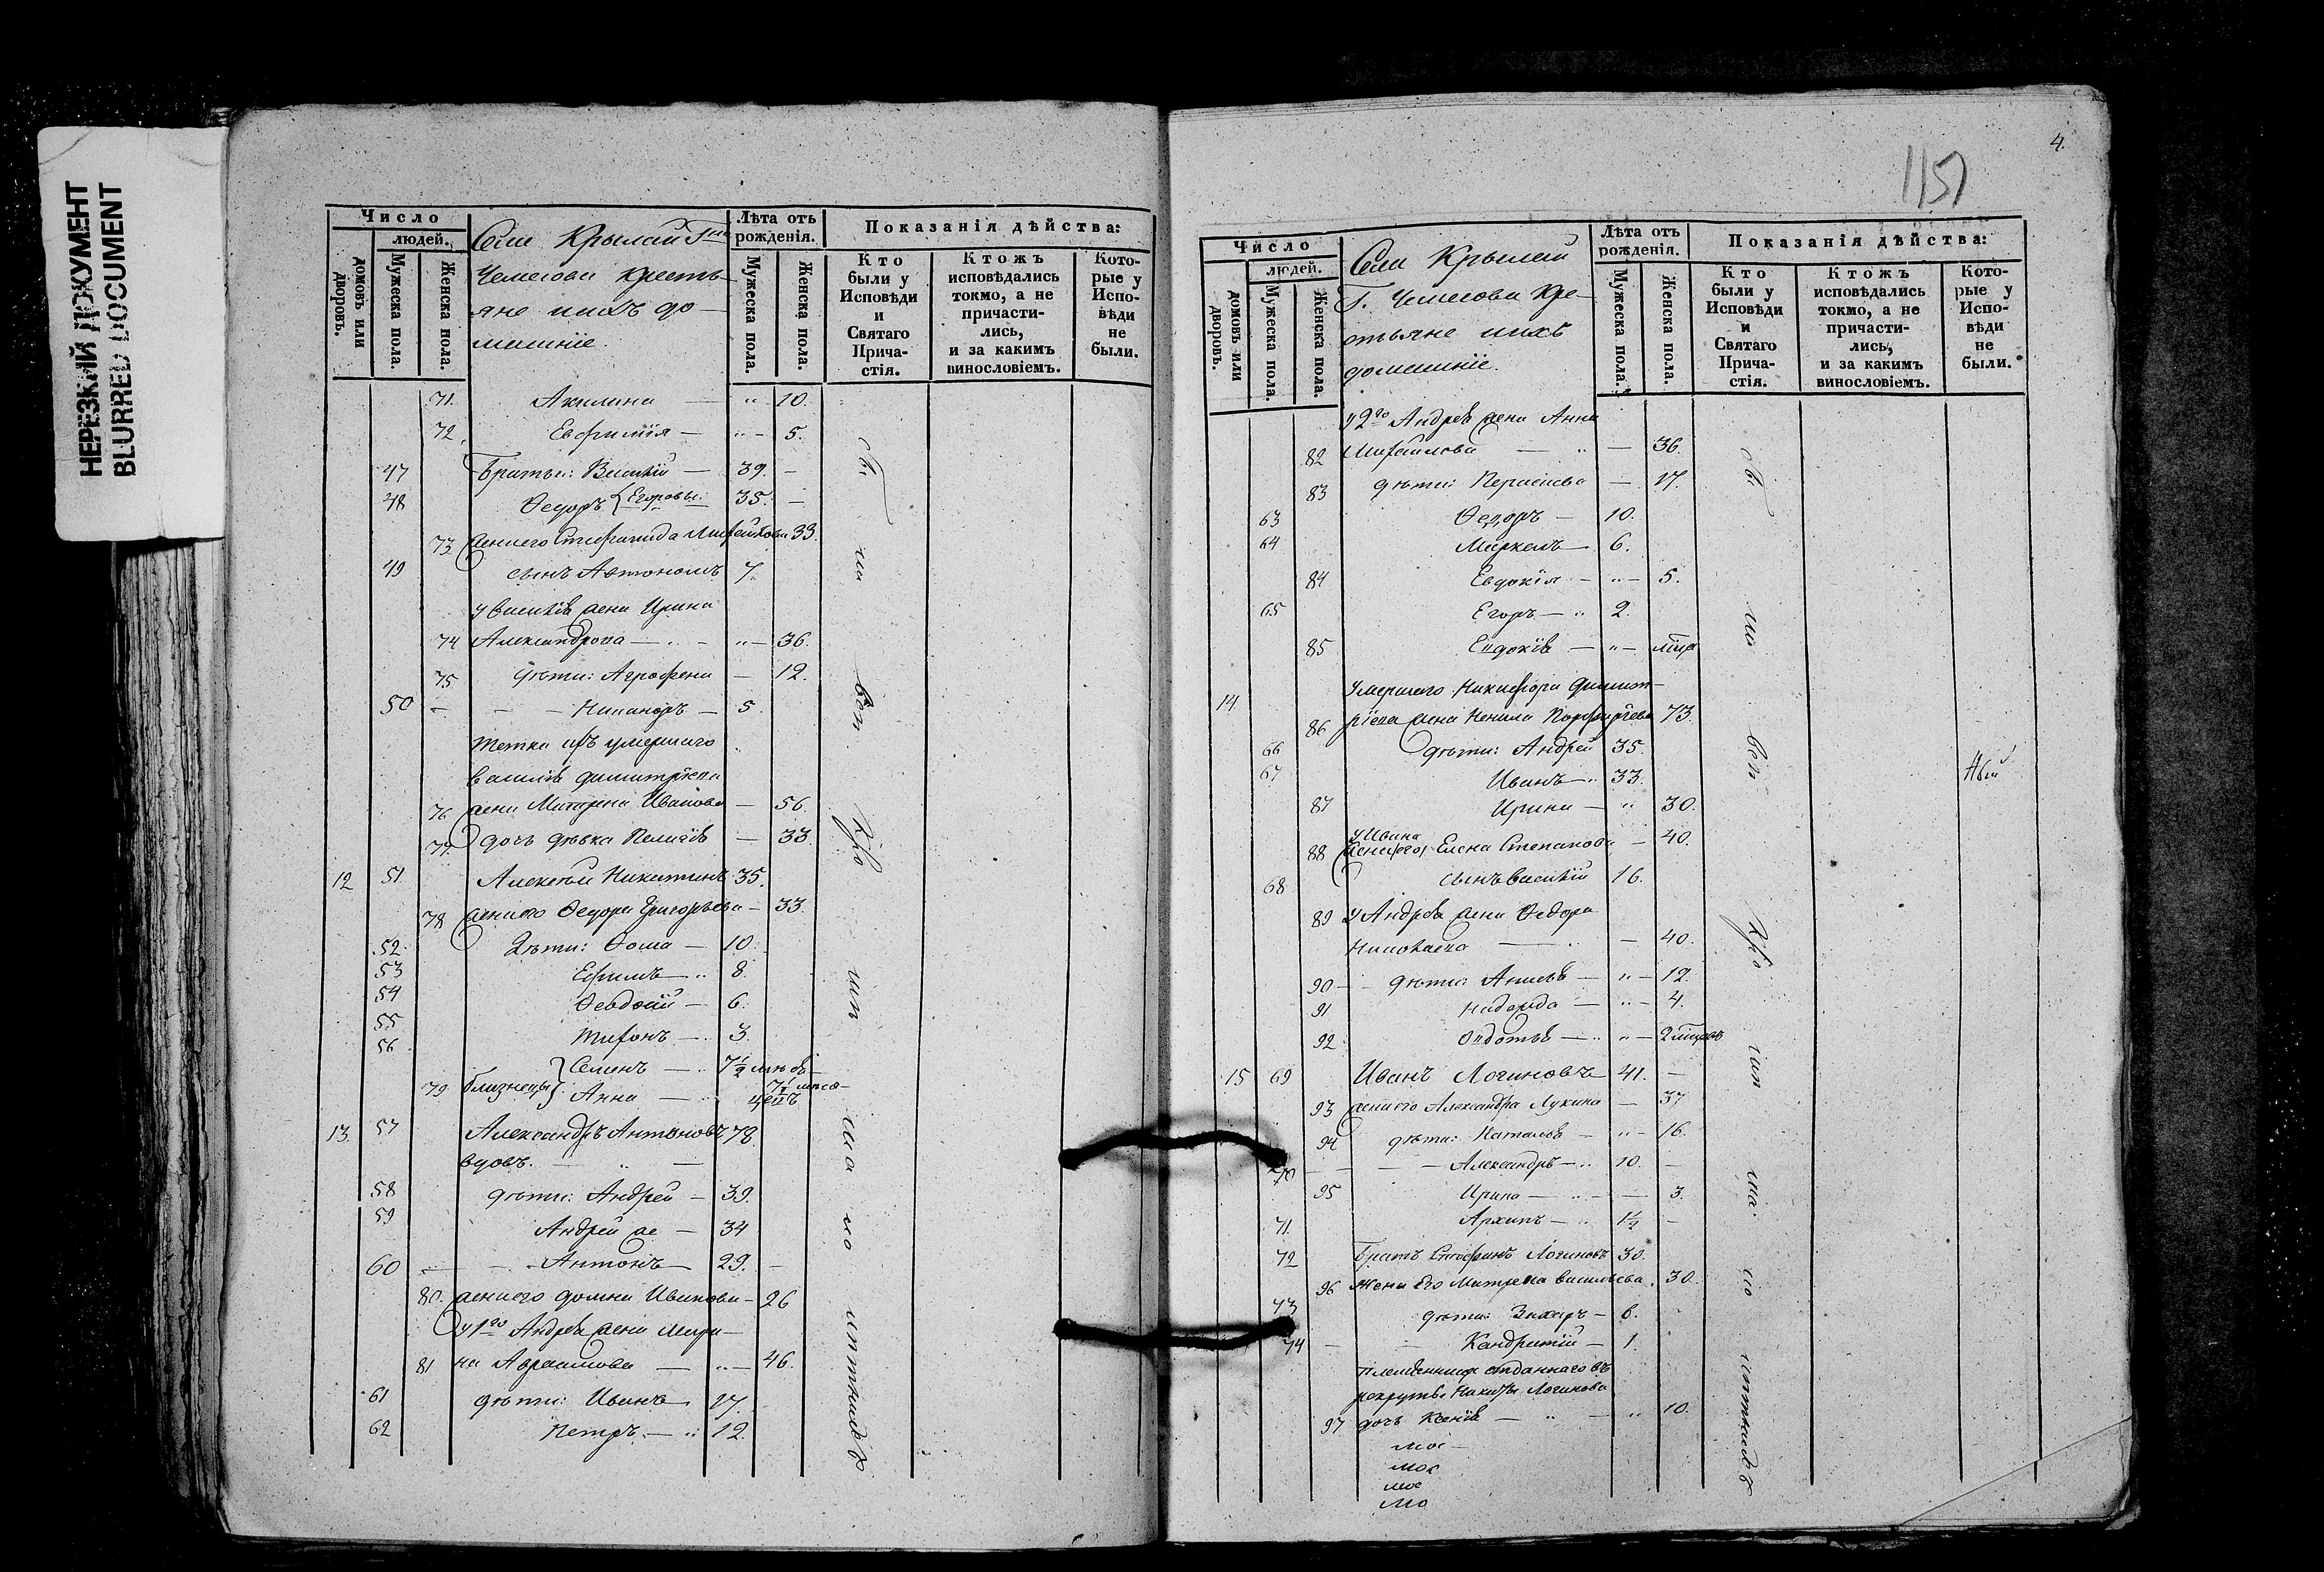 НЕРЕЗКИЙ ДОКУМЕНТ
BLURRED DOCUMENT
Число
людей.
домовъ или дворовъ.
Мужеска пола.
Женска пола.
Села Крылай Гна
Чемесова кресть-
яне ихъ до-
машніе.
Лѣта отъ рожденія.
Мужеска пола.
Женска пола.
Показанія дѣйства:
Кто были у Исповѣди и Святаго Причастія.
Ктожъ исповѣдались токмо, а не причастились, и за какимъ винословіемъ.
Которые у Исповѣди не были.
71. Акилина — „ - 10.
72. Евфимія — „ - 5.
47 Братья: Василій — 39. -
48 Ѳедоръ { Егоровы. 35. -
73 жена его Стефанида Михайлова 33.
49 сынъ Автономъ 7.
у Василія жена Ирина
74 Александрова — „ — 36.
75 дѣти: Агрофена — 12.
50 - - Никаноръ — 5.
тетка ихъ умершаго
Василія Димитріева
76 жена Матрена Иванова — 56.
77 дочь дѣвка Пелагія — 33.
12 51 Алексѣй Никитинъ 35.
78 жена его Ѳедора Григорьева — 33.
52. Дѣти: Ѳома — 10.
53 Ефимъ — „ 8.
54 Ѳеодосій — 6.
55 Тихонъ — „ 3.
56 близнецы } Семенъ — „ 7½
79 Анна — 7½
13. 57 Александръ Антоновъ 78.
вдовъ. — „ —
58 дѣти: Андрей — 39.
59 Андрей же — 34
60 - - Антонъ — 29. -
80. жена его Домна Иванова — 26
у 1го Андрея жена Мари-
81 на Авраамова — „ — 46.
61 дѣти: Иванъ 17.
62 Петръ. — „ 12.
4.
115
Число
людей.
домовъ или дворовъ.
Мужеска пола.
Женска пола.
Села Крылай
Г. Чемесова кре-
стьяне ихъ
домашніе.
Лѣта отъ рожденія.
Мужеска пола.
Женска пола.
Показанія дѣйства:
Кто были у Исповѣди и Святаго Причастія.
Ктожъ исповѣдались токмо, а не причастились, и за какимъ винословіемъ.
Которые у Исповѣди не были.
у 2го Андрея жена Анна
82 Михайлова — „ — 36.
83 дѣти: — 17.
63 Ѳедоръ — 10.
64 Маркелъ — 6.
84 Евдокія — „ — 5.
65 Егоръ — „ 2.
85 Евдокія — „ —
14 умершаго Никифора Димит-
86 ріева жена Ненила Порфирьева 73.
66 дѣти: Андрей 35.
67 Иванъ — „ 33.
87 Ирина — „ 30.
88 у Ивана жена его Елена Степанова — 40.
68 сынъ Василій 16.
89 у Андрея жена Ѳедора
Николаева — „ — 40.
90 - - дѣти: Анисья — „ — 12.
91 Надежда — „ — 4.
92 — „ — 2
15 69 Иванъ Логиновъ 41. -
93 жена его Александра Лукина — 37
94 дѣти: Наталья — „ — 16.
70 - - - Александръ — „ 10. -
95 Ирина — „ — 3.
71. Архипъ — „ 1½ -
72 Братъ Логиновъ 30.
96 жена его Матрена Васильева. 30.
73 дѣти: Захаръ — 6.
74 - Кандратій — 1.
племянница отданнаго въ
рекруты Никиты Логинова
97 дочь Ксенія — „ — „ 10.